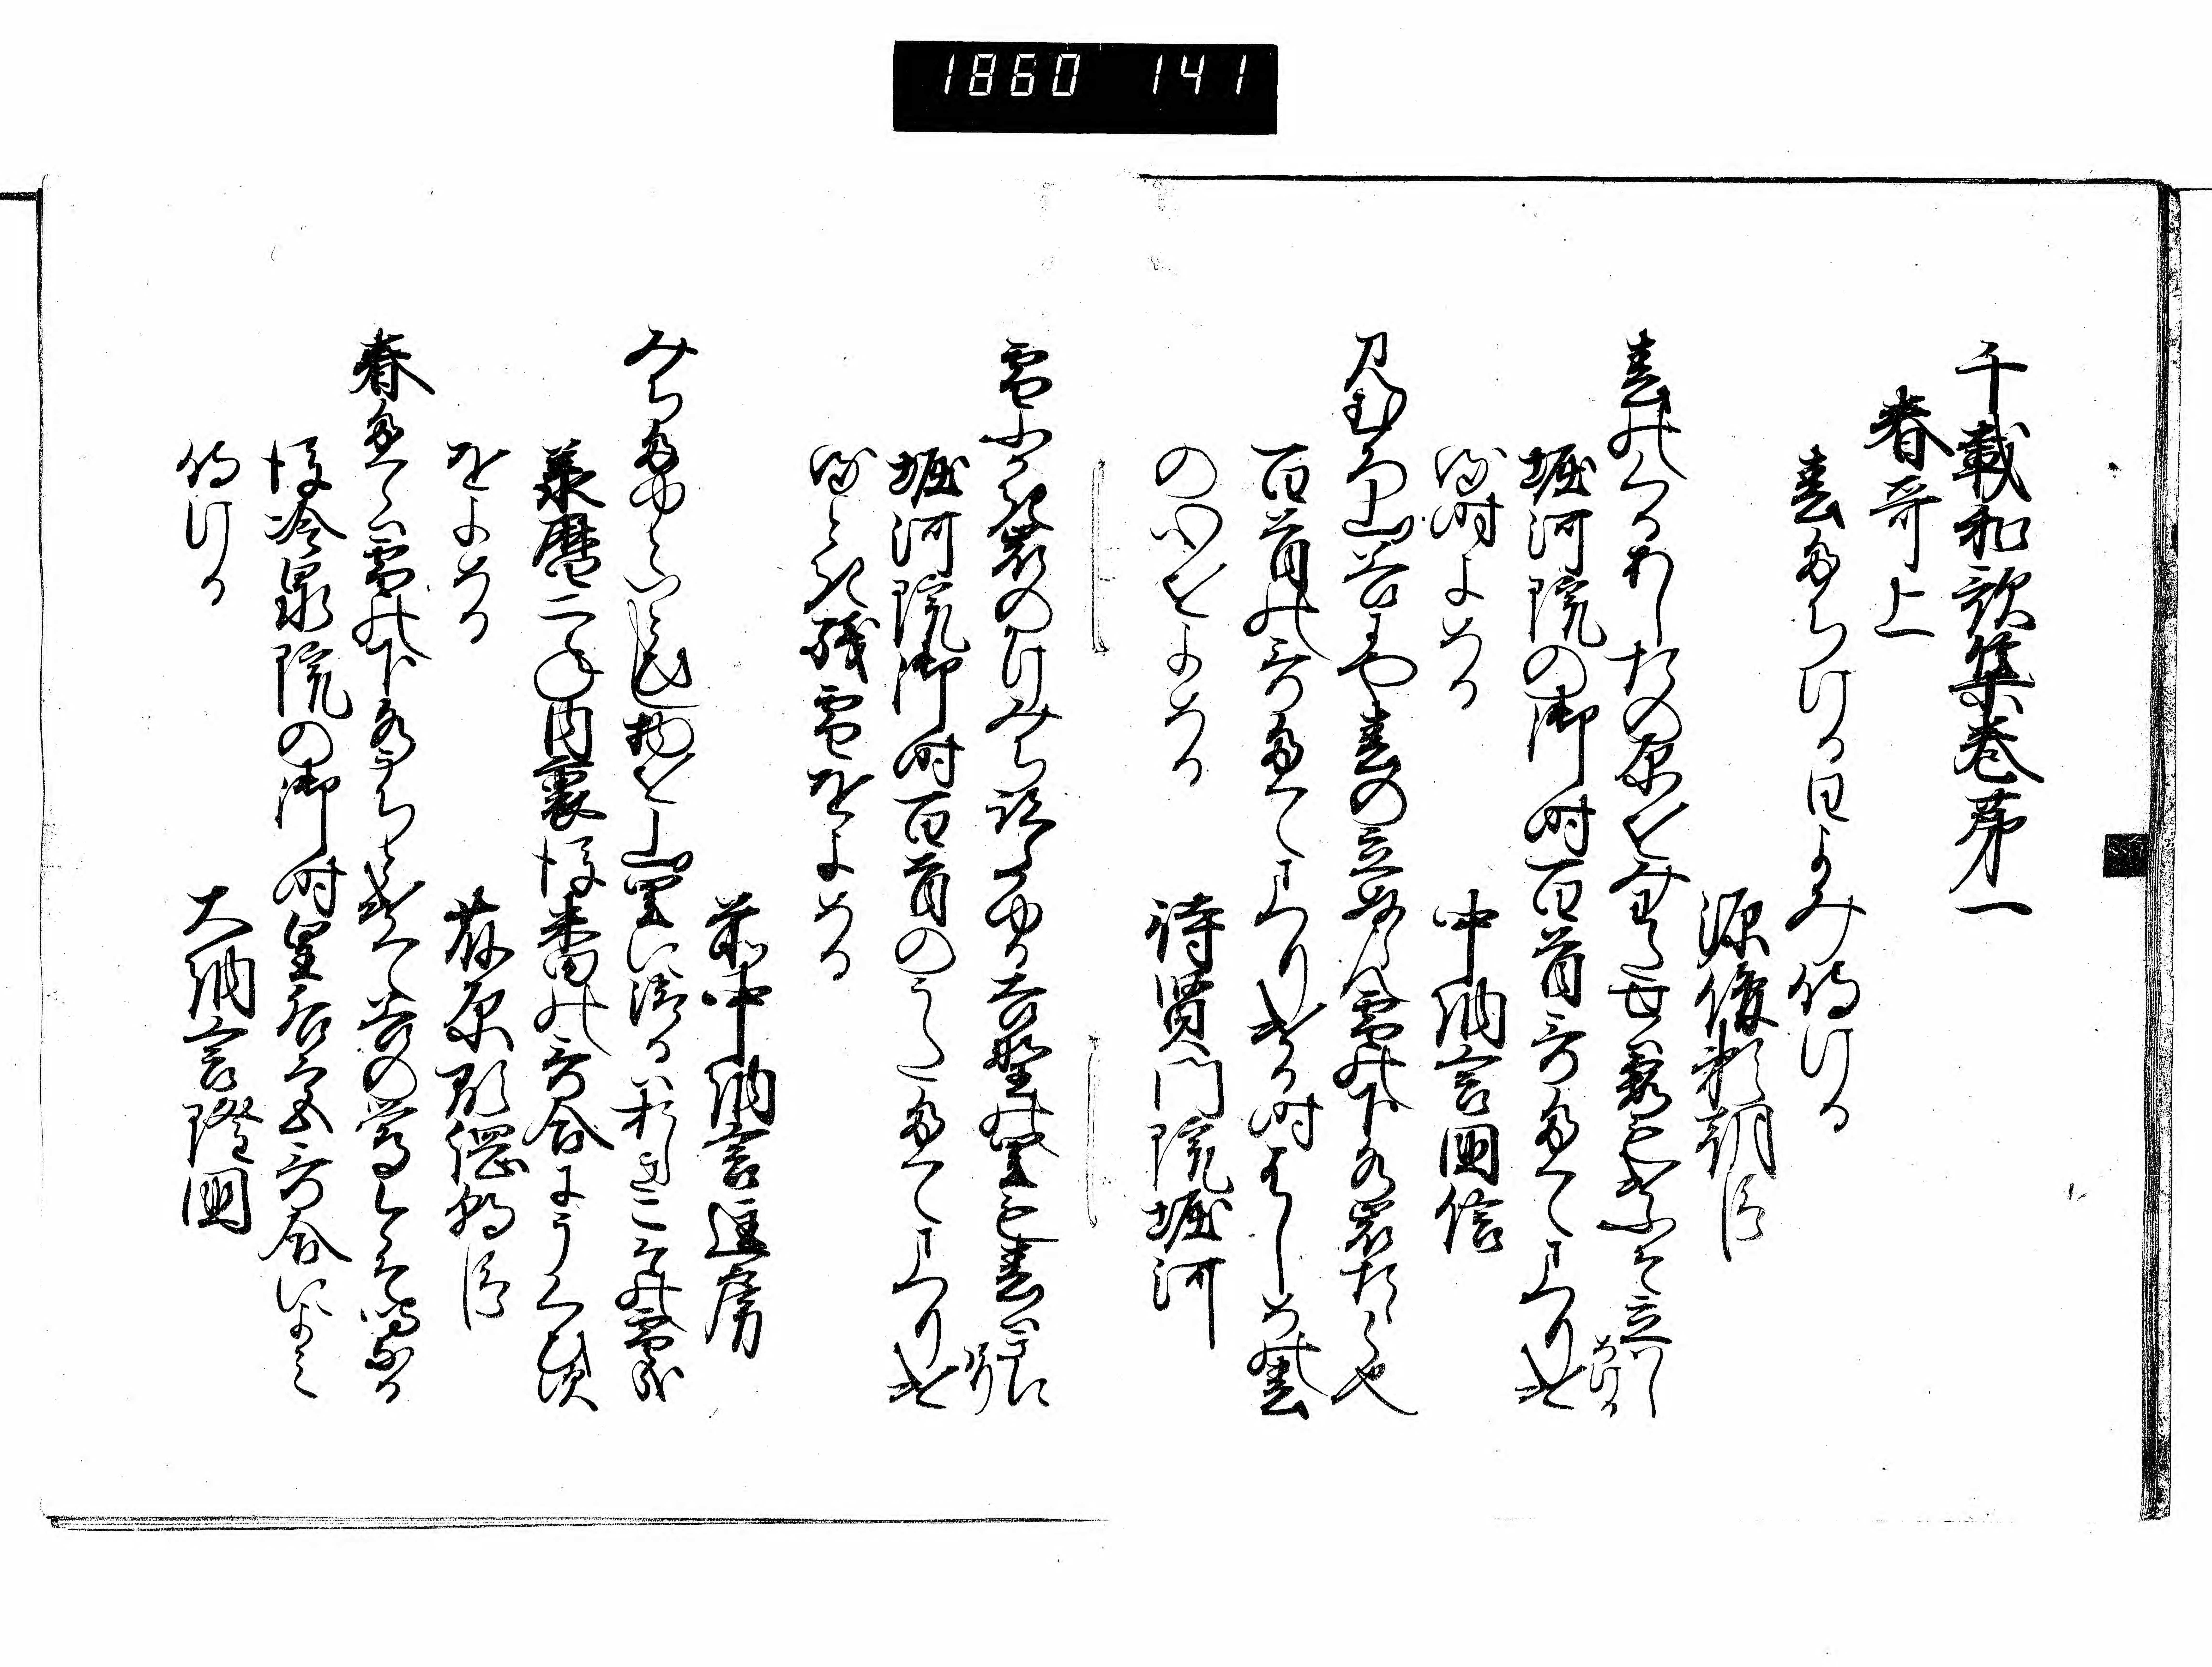 1860 141
千載和歌集巻第一
春哥上
春たちける日よみ侍ける
源俊頼朝臣
春のくるあしたの原をみわたせは霞もけふそ立はし
めける
堀河院の御時百首哥たてまつりけ
る時よめる
中納言国信
みむろ山谷にや春の立ぬらん雪の下水岩たゝく也
百首の哥たてまつりける時はしめの春
のこゝろをよめる
待賢門院堀河
雪ふかき岩のかけみち跡たゆる吉野の里も春はきに
けり
堀河院御時百首のうたたてまつりけ
るとき残雪をよめる
前中納言匡房
みちたゆといとひし物を山里に消るはおしきこその雪哉
承暦二年内裏後番の哥合にうくひす
をよめる
藤原顕綱朝臣
春たては雪の下水うちとけて谷の鶯いまそ鳴なる
後冷泉院の御時皇后宮哥合によみ
侍ける
大納言隆国